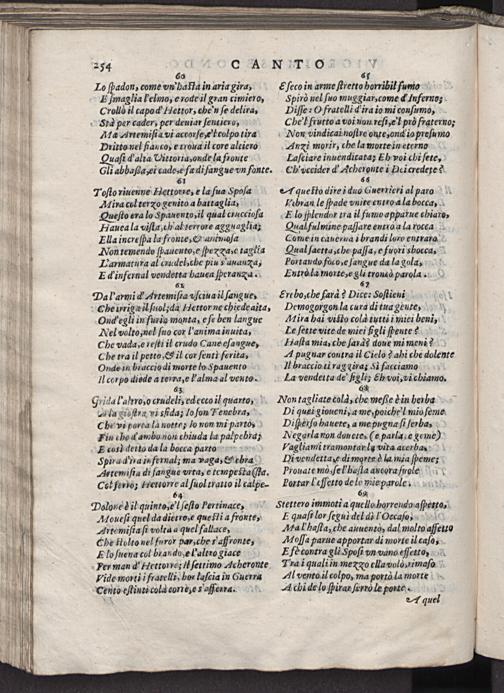 254
CANTO
60
Lo spadon, come vn'hasta in aria gira,
E smaglia l'elmo, e rode il gran cimiero,
Crollò il capo d'Hettor, che'n se delira,
Stà per cader, per deniar sentiero,
Ma Artemisia vi accorse, e'l colpo tira
Dritto nel fianco, e troua il core altiero
Quasi d'alta Vittoria, onde la fronte
Gli abbassa, ei cade, e fa di sangue vn fonte.
61
Tosto riuenne Hettorre, e la sua Sposa
Mira col terzo genito a battaglia,
Questo era lo Spauento, il qual crucciosa
Hauea la vista, ch'al terrore agguaglia;
Ella increspa la fronte, & animosa
Non temendo spauento, e spezza, e taglia
L'armatura al crudel, che piu s'auanza,
E d'infernal vendetta hauea speranza.
62
Da l'armi d'Artemisia vsciua il sangue,
Che irriga il suol; da Hettor ne chiede aita,
Ond'egli in furia monta, e se ben langue
Nel volto, nel suo cor l'anima inuita,
Che vada, e resti il crudo Cane esangue,
Che tra il petto, & il cor sentì ferita,
Onde in braccio di morte lo Spauento
Il corpo diede a terra, e l'alma al vento.
63
Grida l'altro, o crudeli, ed ecco il quarto,
A la giostra vi sfida; Io son Tenebra,
Che vi porta la notte; Io non mi parto,
Fin che d'ambo non chiuda la palpebra;
E così detto da la bocca parto
Spira d'ira infernal; ma vaga, & ebra
Artemisia di sangue vrta, e tempesta (sta.
Col ferro; Hettorre al suol tratto il calpe-
64
Dolone è il quinto, e'l sesto Pertinace,
Mouesi quel da dietro, e questi a fronte,
Artemisia si volta a quel fallace,
Che stolto nel furor par, che s'affronte,
E lo suena col brando, e l'altro giace
Per man d'Hettorre; Il settimo Acheronte
Vide morti i fratelli, hor lascia in Guerra
Cento estinti colà corre, e s'afferra.
65
E seco in arme stretto horribil fumo
Spirò nel suo muggiar, come d'Inferno;
Disse: O fratelli d'ira io mi consumo,
Che'l frutto a voi non resi, e'l prò fraterno;
Non vindicai nostre onte, ond'io presumo
Anzi morir, che la morte in eterno
Lasciare inuendicata; Eh voi chi sete,
Ch'vccider d'Acheronte i Dei credete?
66
A questo dire i duo Guerrieri al paro
Vibran le spade vnite entro a la bocca,
E lo splendor tra il fumo apparue chiaro,
Qual fulmine passare entro a la rocca
Come in cauerna i brandi loro entraro
Qual saetta, che passa, e fuori sbocca,
Portando foco, e sangue da la gola,
Entrò la morte, e gli troncò parola.
67
Erebo, che farà? Dice: Sostieni
Demogorgon la cura di tua gente,
Mira hai visto colà tutti i miei beni,
Le sette vite de miei figli spente?
Hasta mia, che farà? doue mi meni?
A pugnar contra il Cielo? ahi che dolente
Il braccio ti raggira; Si facciamo
La vendetta de' figli; Eh voi, vi chiamo.
68
Non tagliate colà, che messe è in herba
Di quei gioueni, a me, poiche'l mio seme
Disperso hauete, a me pugna si serba,
Negarla non douete, (e parla, e geme)
Vagliami tramontar la vita acerba,
Di vendetta, e di morte è la mia speme;
Prouate mò, se l'hasta ancora suole
Portar l'effetto de le mie parole.
69
Stettero immoti a quello horrendo aspetto,
E quasi lor seguì del dì l'Occaso,
Ma l'hasta, che auuentò, dal molto affetto
Mossa parue apportar di morte il caso,
E fè contra gli Sposi vn vano effetto,
Tra i quali in mezzo ella volò, rimaso
Al vento il colpo, ma portò la morte
A chi de lo spirar serrò le porte.
A quel